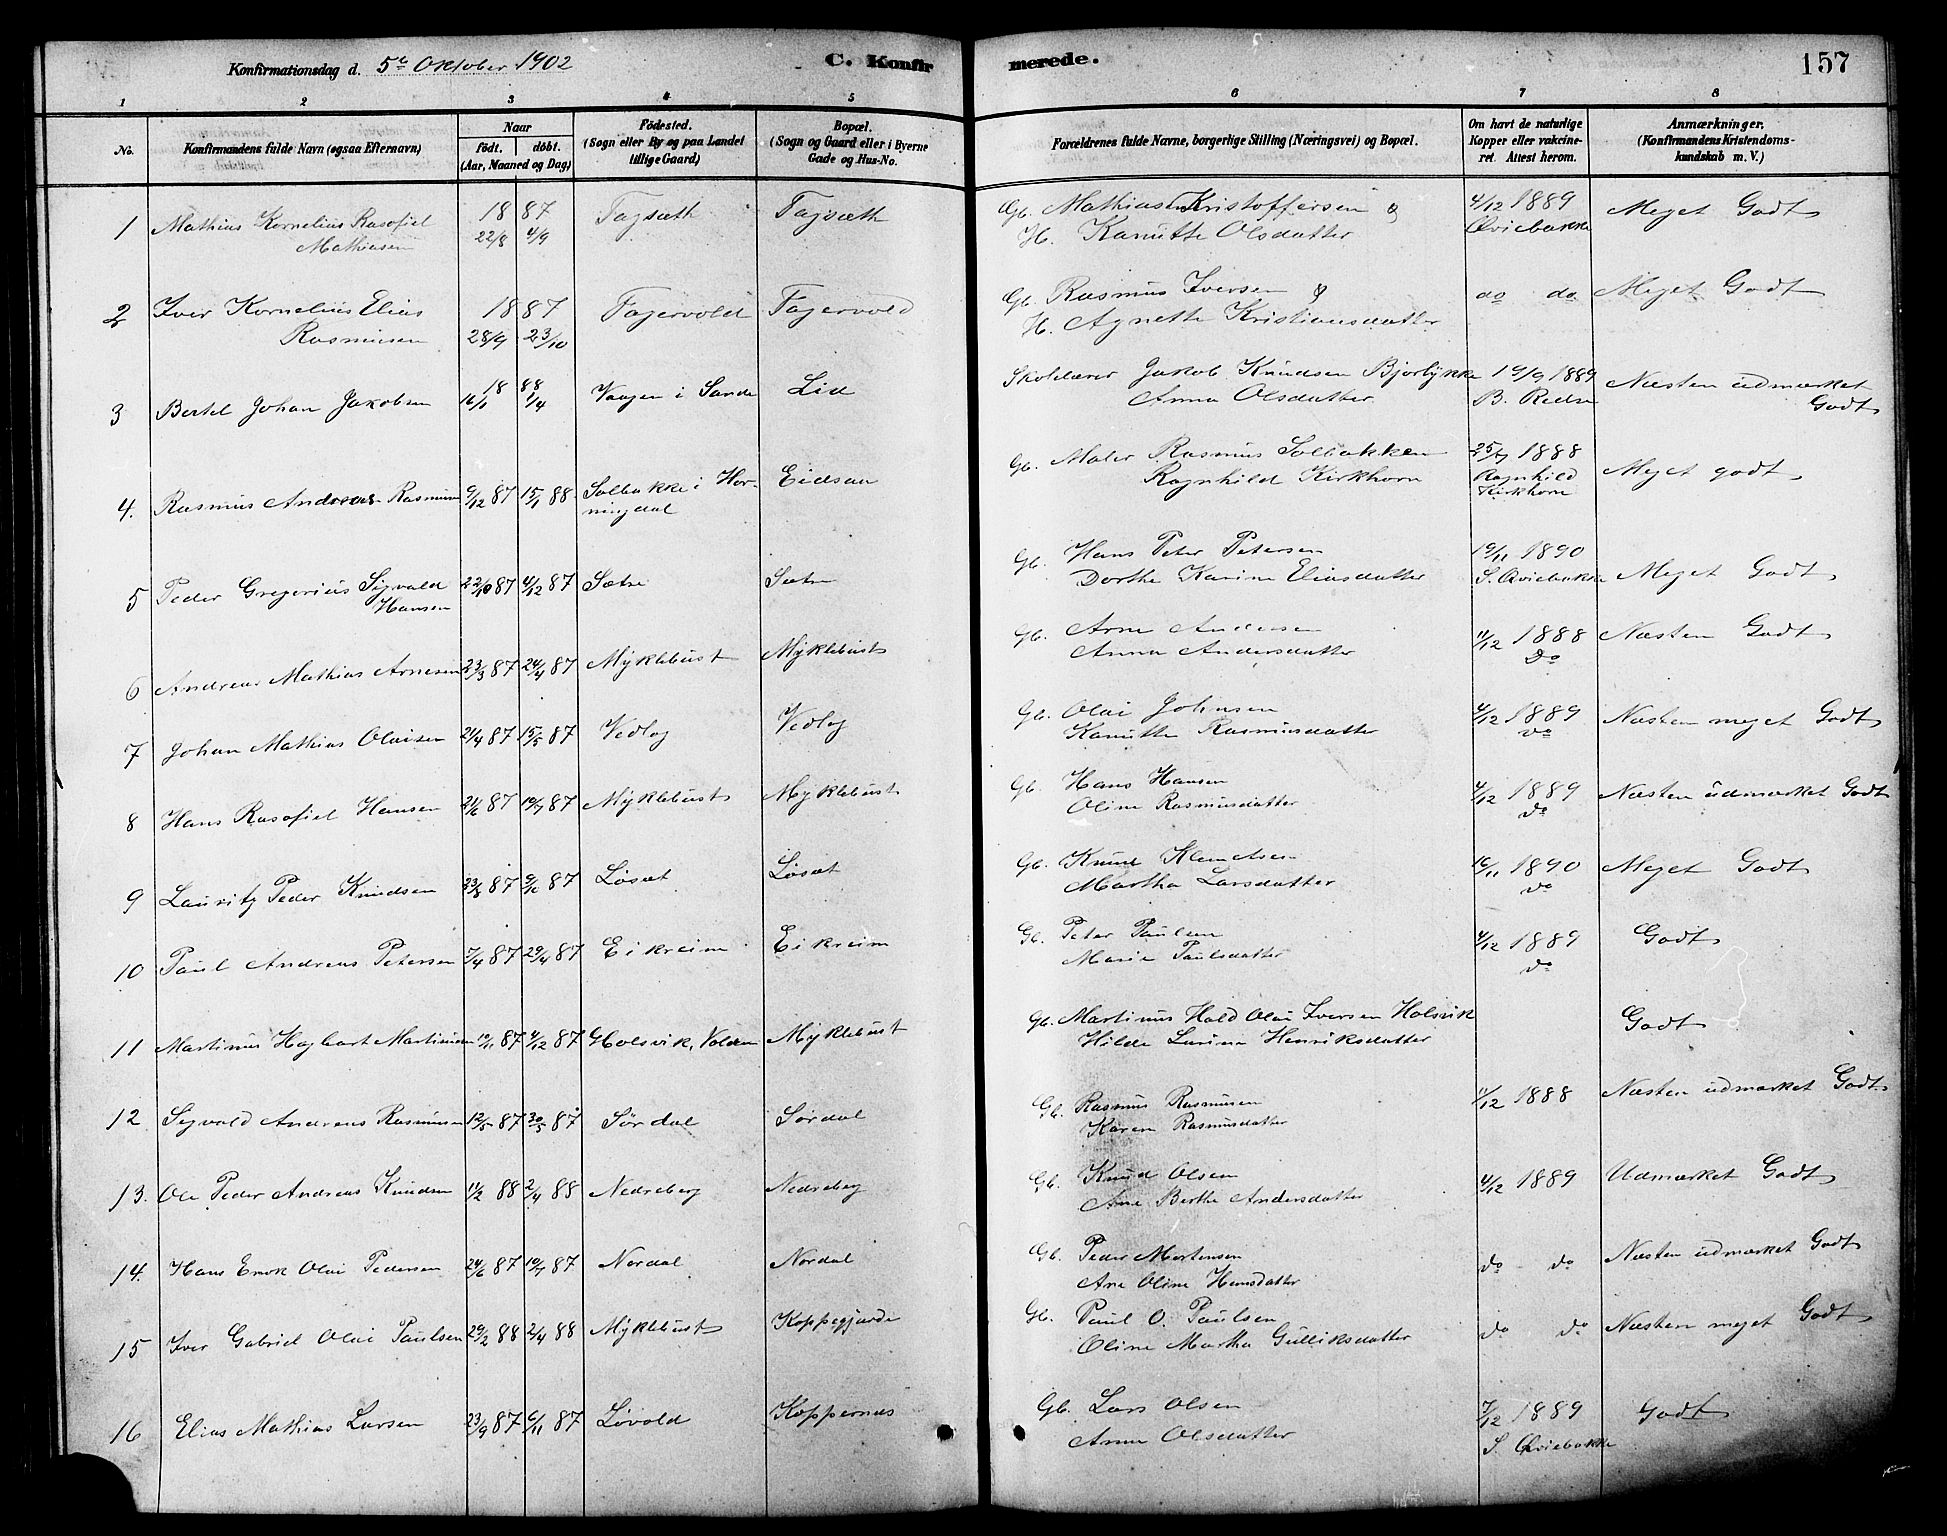 Konfirmationsdag d. 5te Oktober 1902 C. Konfir
merede. 157
1 2 3 4 5 6 7 8
No. Konfirmandens fulde Navn (ogsaa Efternavn) Naar födt. döbt. (Aar, Maaned og Dag) Födested. (Sogn eller By og paa Landet tillige Gaard) Bopæl. (Sogn og Gaard eller i Byerne Gade og Hus-No. Forældrenes fulde Navne, borgerlige Stilling (Næringsvei) og Bopæl. Om havt de naturlige Kopper eller vakcineret. Attest herom. Anmærkninger. (Konfirmandens Kristendomskundskab m. V.)
1 Mathias Kornelius Rasofiel 18 87 Fagsæth Fagsæth Gb. Mathias Kristoffersen & 4/12 1889 Meget Godt
Mathiasen 22/8 4/9 H. Kanutte Olsdatter Øviebakke
2 Iver Kornelius Elias 18 87 Fagervold Fagervold Gb. Rasmus Iversen & do do Meget Godt
Rasmusen 28/9 23/10 H. Agnette Kristiansdatter
3 Bertel Johan Jakobsen 18 88 16/1 2/4 Vaagen i Sande Lid Skolelærer Jakob Knudsen Bjørlykke 19/9 1889 Næsten udmærket
Anna Olsdatter B. Redse Godt
4. Rasmus Andreas Rasmusen 9/12 87 15/1 88 Solbakke i Hor- Eidsaa Gb. Maler Rasmus Solbakken 25/7 1888 Meget godt
ningdal Ragnhild Kirkhorn Ragnhild
Kirkhorn
5 Peder Gregerius Sigvald 22/10 87 4/12 87 Sætre Sætre Gb. Hans Peter Petersen 19/11 1890 Meget Godt
Hansen Dorthe Karine Eliasdatter S. Øviebakke
6 Andreas Mathias Arnesen 23/3 87 24/4 87 Myklebust Myklebust Gb. Arne Andersen 11/12 1888 Næsten Godt
Anna Andersdatter Do
7 Johan Mathias Olaisen 21/4 87 15/5 87 Vedlog Vedlog Gb. Olai Johnsen 4/12 1889 Næsten meget Godt
Kanutte Rasmusdatter do
8 Hans Rasofiel Hansen 21/6 87 19/7 87 Myklebust Myklebust Gb. Hans Hansen 4/12 1889 Næsten udmærket Godt
Oline Rasmusdatter do
9 Lauritz Peder Knudsen 87 87 Løset Løset Gb. Knud Klemetsen 16/11 1890 Meget Godt
Martha Larsdatter do
10 Paul Andreas Petersen 7/4 87 29/4 87 Eikreim Eikreim Gb. Peter Paulsen 4/12 1889 Godt
Marie Paulsdatter do
11 Martinus Hagbart Martinusen 19/11 87 4/12 87 Holsvik, Volden Myklebust Gb. Martinus Hald Olai Iversen Holsvik Godt
Hilde Larina Henriksdatter
12 Sigvald Andreas Rasmusen 12/5 87 30/5 87 Sørdal Sørdal Gb. Rasmus Rasmusen 11/12 1888 Næsten udmærket Godt
Karen Rasmusdatter
13. Ole Peder Andreas Knudsen 11/2 88 2/4 88 Nedreberg Nedreberg Gb. Knud Olsen 4/12 1889 Udmærket Godt
Ane Berthe Andersdatter
14. Hans Enok Olai Pedersen 24/6 87 19/7 87 Nordal Nordal Gb. Peder Mortensen do do Næsten udmærket Godt
Ane Oline Hansdatter
15 Iver Gabriel Olai Paulsen 29/2 88 2/4 88 Myklebust Koppegjærde Gb. Paul O. Paulsen do do Næsten meget Godt
Oline Martha Gulliksdatter
16 Elias Mathias Larsen 23/9 87 6/11 87 Løvold Koppernæs Gb. Lars Olsen 7/12 1889 Godt
Anne Olsdatter S. Øviebakke